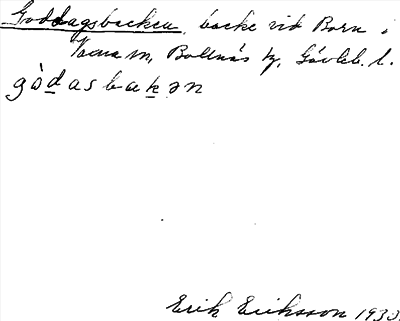 Goddagsbacken, backe vid Born i
Voxna sn, Bollnäs tg, Gävleb. l.
gòdasbakən
Erik Eriksson 1933.